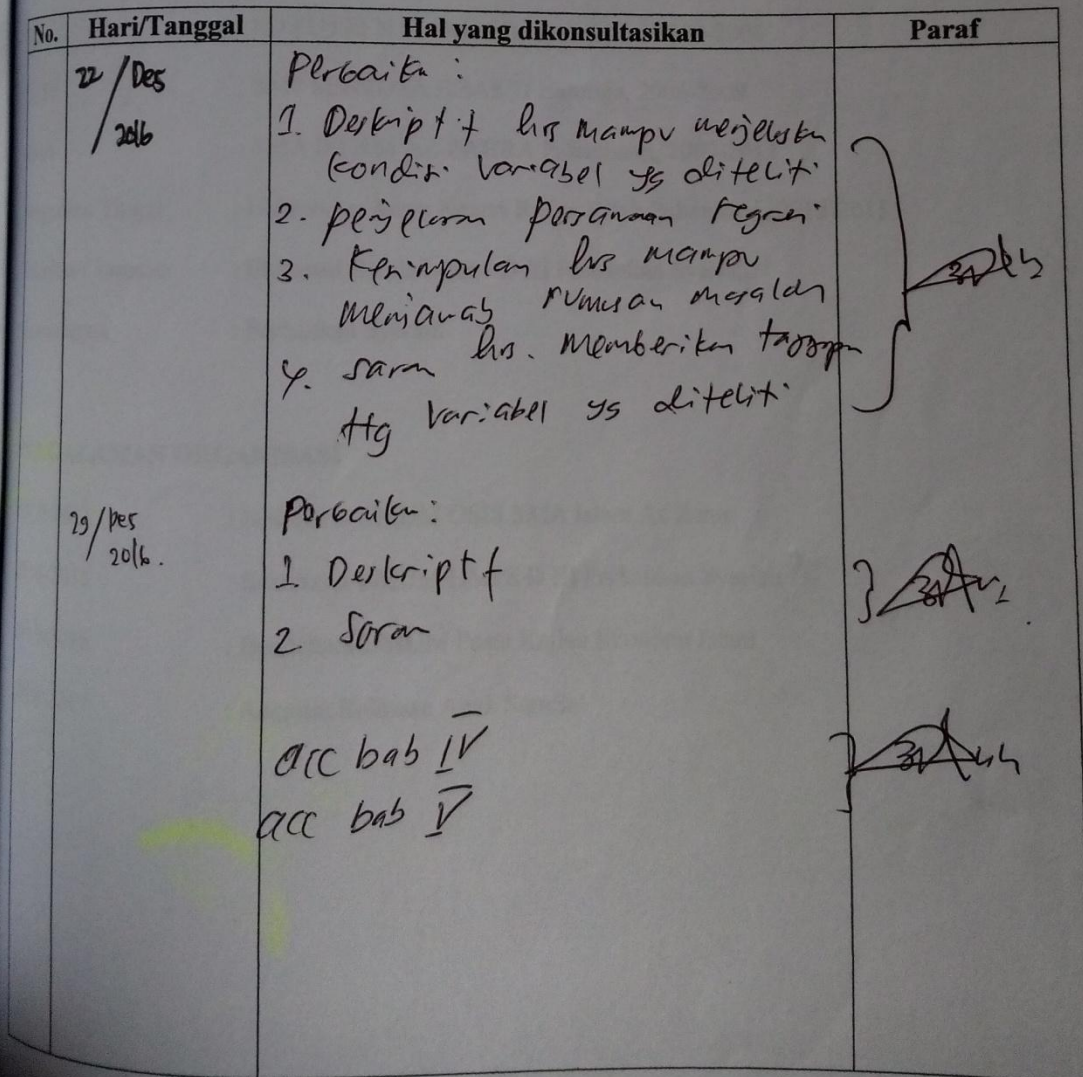 No. Hari/Tanggal Hal yang dikonsultasikan Paraf
22/Des Perbaikn :
2016 1. Deskriptif hrs mampu menjelaskn
kondisi variabel yg diteliti
2. penjelasan persamaan regresi
3. Kesimpulan hrs mampu
menjawab rumusan masalah
4. saran hrs. memberikan
ttg variabel yg diteliti
29/Des Perbaikn :
2016. 1 Deskriptf
2 Saran
acc bab IV
acc bab V